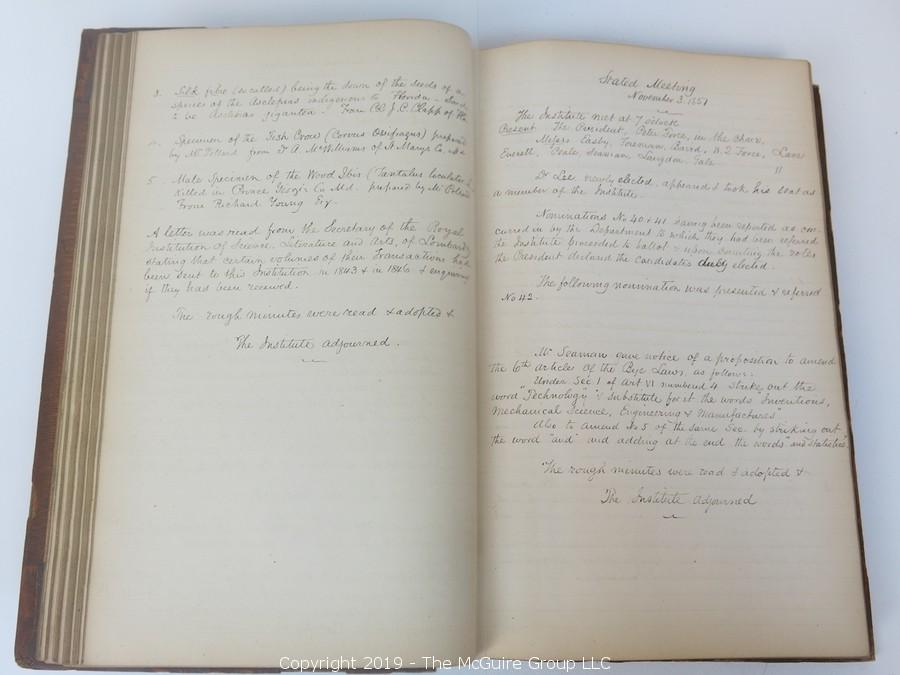 3. Silk fibre (so called) being the down of the seeds of a
species of the Asclepias indigenous to
to be Asclepias gigantea. From Col J. C. Clapp of
4. Specimen of the Fish Crow (Corvus Ossifragus) prepared
by Mr Pollard from Dr A. McWilliams of St Marys Co.
5. Male Specimen of the Wood Ibis (Tantalus loculator)
killed in Prince Geo's Co Md. prepared by Mr
From Richard Young Esq.
A letter was read from the Secretary of the Royal
Institution of Science, Literature and Arts, of Lombardy
stating that certain volumes of their Transactions had
been sent to this Institution in 1843 & in 1846 & enquiring
if they had been received.
The rough minutes were read & adopted &
The Institute adjourned.
Stated Meeting
November 3. 1851
The Institute met at 7 o'clock
Present The President, Peter Force, in the chair,
Messrs Easby, Foreman, Baird, W. Q. Force,
Everett, Peale, Seaman Langdon Gale
11
Dr Lee newly elected appeared & took his seat as
a member of the Institute.
Nominations No 40 & 41 having been reported as con-
curred in by the Department to which they had been referred
the Institute proceeded to ballot & upon counting the votes
the President declared the candidates duly elected.
The following nomination was presented & referred
No 42.
Mr Seaman gave notice of a proposition to amend
the 6th article of the Bye Laws, as follows:
Under Sec 1 of Art VI numbered 4 strike out the
word "Technology" & substitute for it the words "Inventions,
Mechanical Science, Engineering & Manufactures"
Also to amend No 5 of the same Sec. by striking out
the word "and" and adding at the end the words "and statistics"
The rough minutes were read & adopted &
The Institute adjourned
Copyright 2019 - The McGuire Group LLC